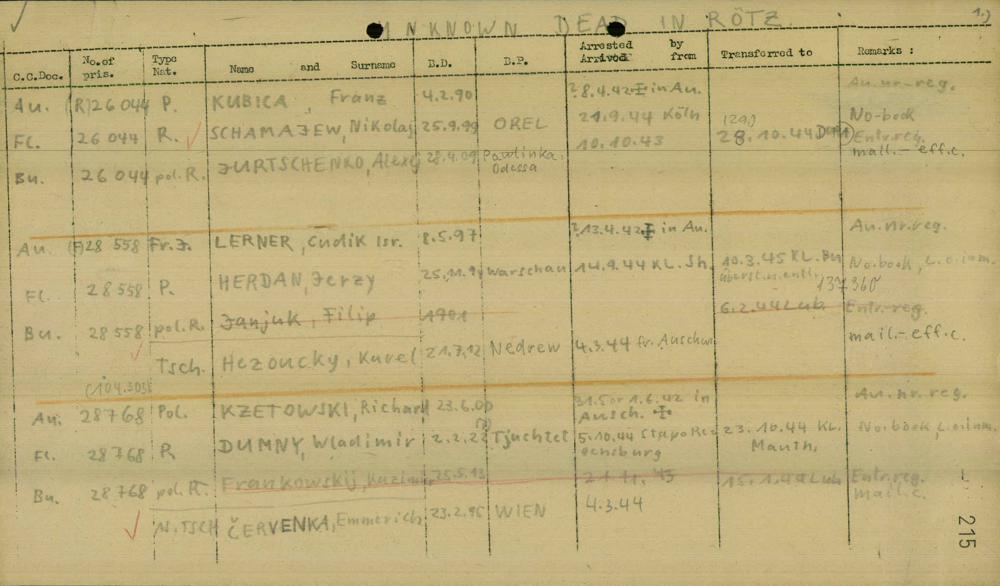 UNKNOWN DEAD IN RÖTZ. 1.)
C.C.Doc. No.of pris. Type Nat. Name and Surname B.D. B.P. Arrested Arrived by from Transferred to Remarks :
Au. (R)26 044 P. KUBICA, Franz 4.2.90 ?8.4.42 in Au. Au.nr-reg.
Fl. 26 044 R. SCHAMAJEW, Nikolaj 25.9.99 OREL 21.9.44 Köln 28.10.44 No-book
Bu. 26 044 pol.R. JURTSCHENKO, Alexej 28.4.09 Pawlinka. Odessa 10.10.43 Entr.reg. mail.-eff.c.
Au. (F)28 558 Fr.J. LERNER, Cudik Isr. 8.5.97 ?13.4.42 in Au. Au.nr.reg.
Fl. 28 558 P. HERDAN, Jerzy Warschau 14.9.44 KL. Sh. 10.3.45 KL. Bu No-book,
137360
Bu. 28 558 pol.R. Janjuk, Filip 1901 6.2.44 Lub. Entr.reg.
Tsch. Hezoucky, Karel 21.7.12 Nedrew 4.3.44 fr. Auschw. mail.-eff.c.
Au. 28768 Pol. KZETOWSKI, Richard 23.6.00 31.5 or 1.6.42 in Ausch. Au.nr.reg.
Fl. 28768 P. DUMNY, Wladimir 2.2.22 Tjuchtet 5.10.44 Stapo Regensburg 23.10.44 KL. Mauth. No.book,
Bu. 28768 pol.R. Frankowskij, Kazimir 25.5.13 15.1.44 Lub Entr.reg. mail.c.
N.TSCH ČERVENKA, Emmerich 23.2.95 WIEN 4.3.44
215